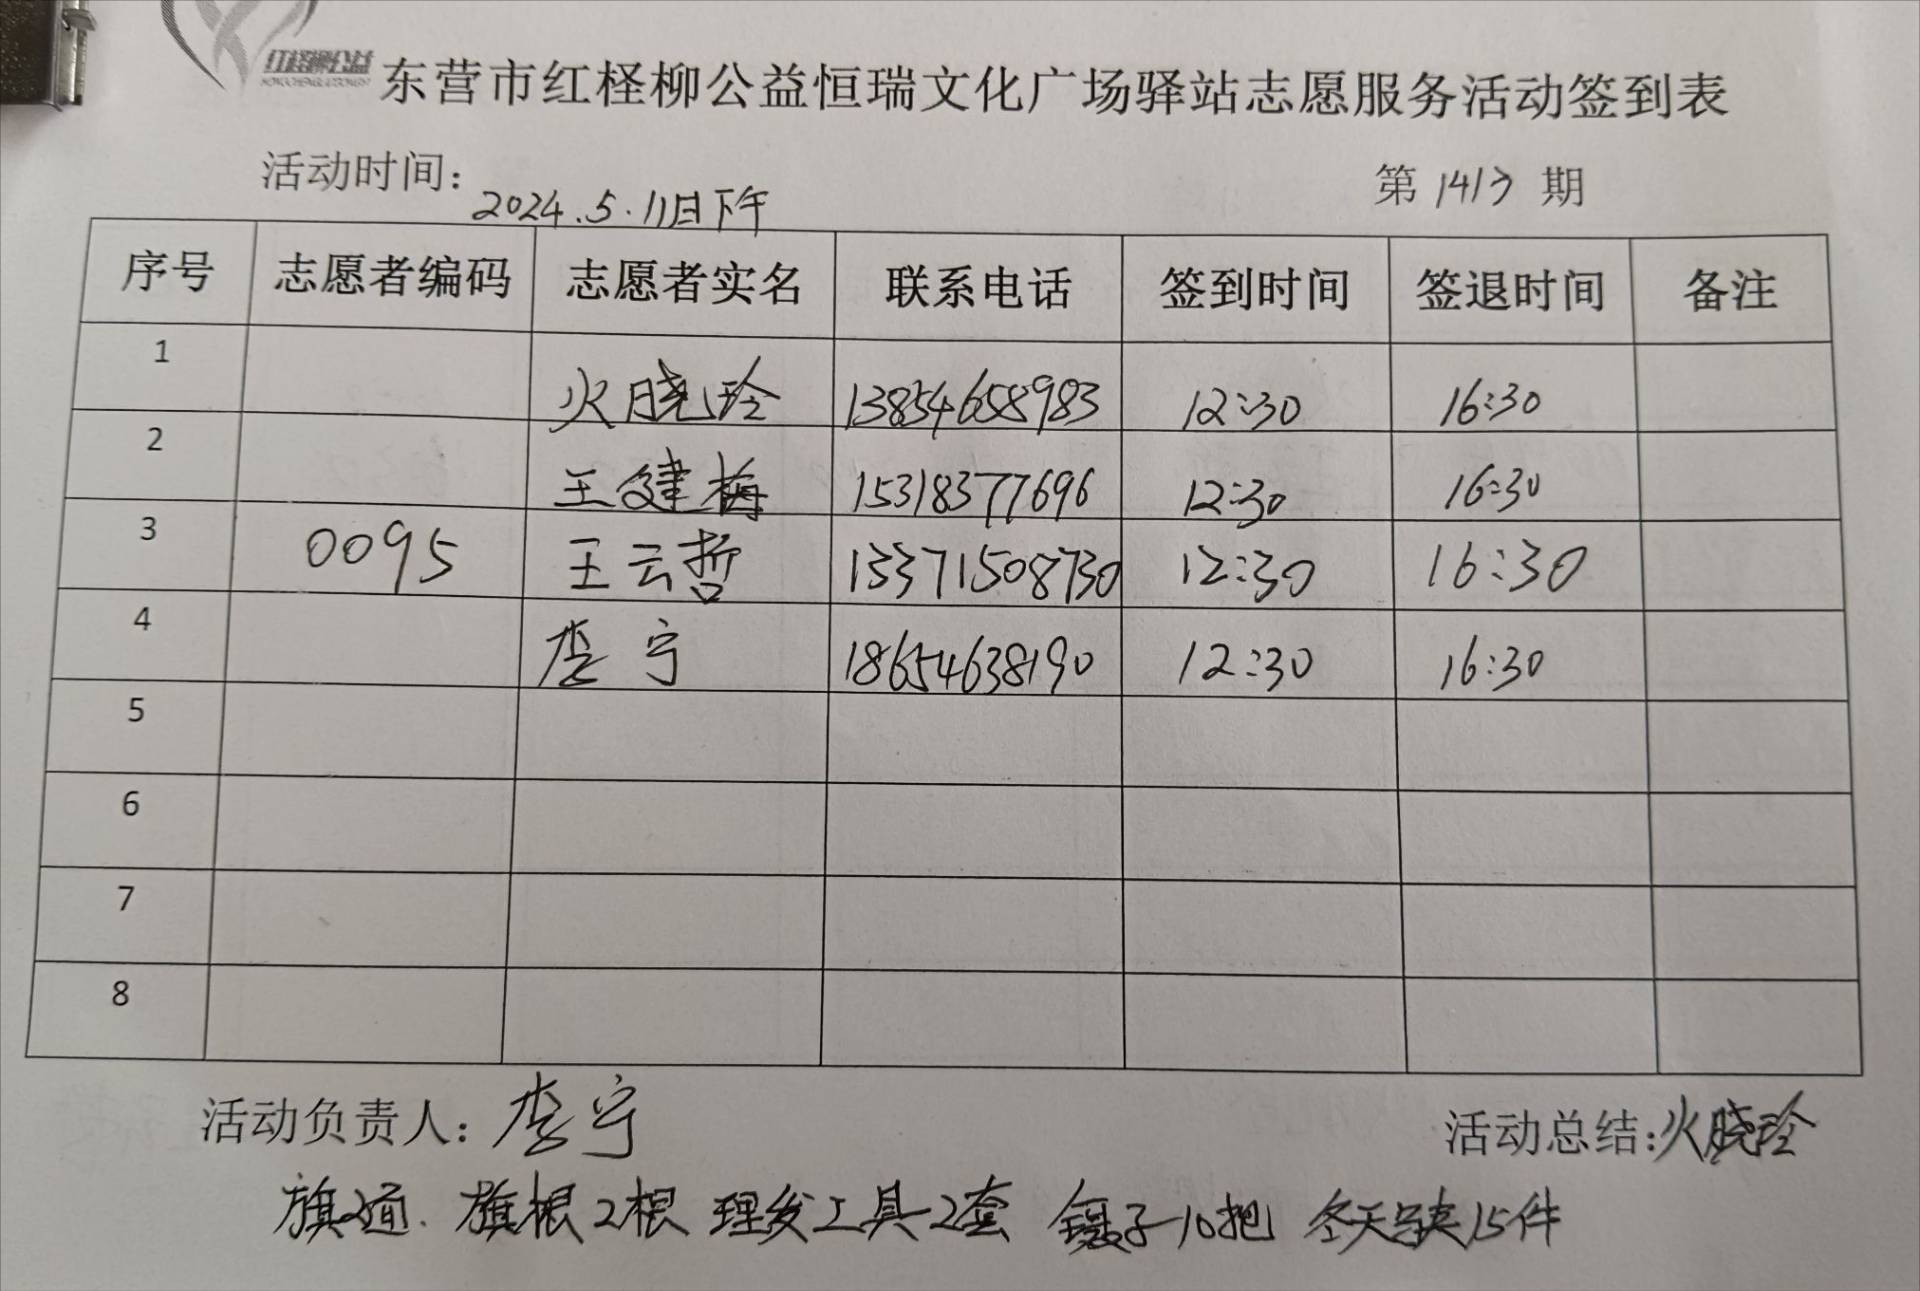 红柽柳公益
东营市红柽柳公益恒瑞文化广场驿站志愿服务活动签到表
活动时间: 2024.5.11日下午 第 1413 期
序号 志愿者编码 志愿者实名 联系电话 签到时间 签退时间 备注
1 火晓玲 13854658983 12:30 16:30
2 王建梅 15318377696 12:30 16:30
3 0095 王云哲 13371508730 12:30 16:30
4 李宁 18654638190 12:30 16:30
5
6
7
8
活动负责人: 李宁 活动总结: 火晓玲
旗2面. 旗根2根 理发工具2套 镊子10把 冬天 15件